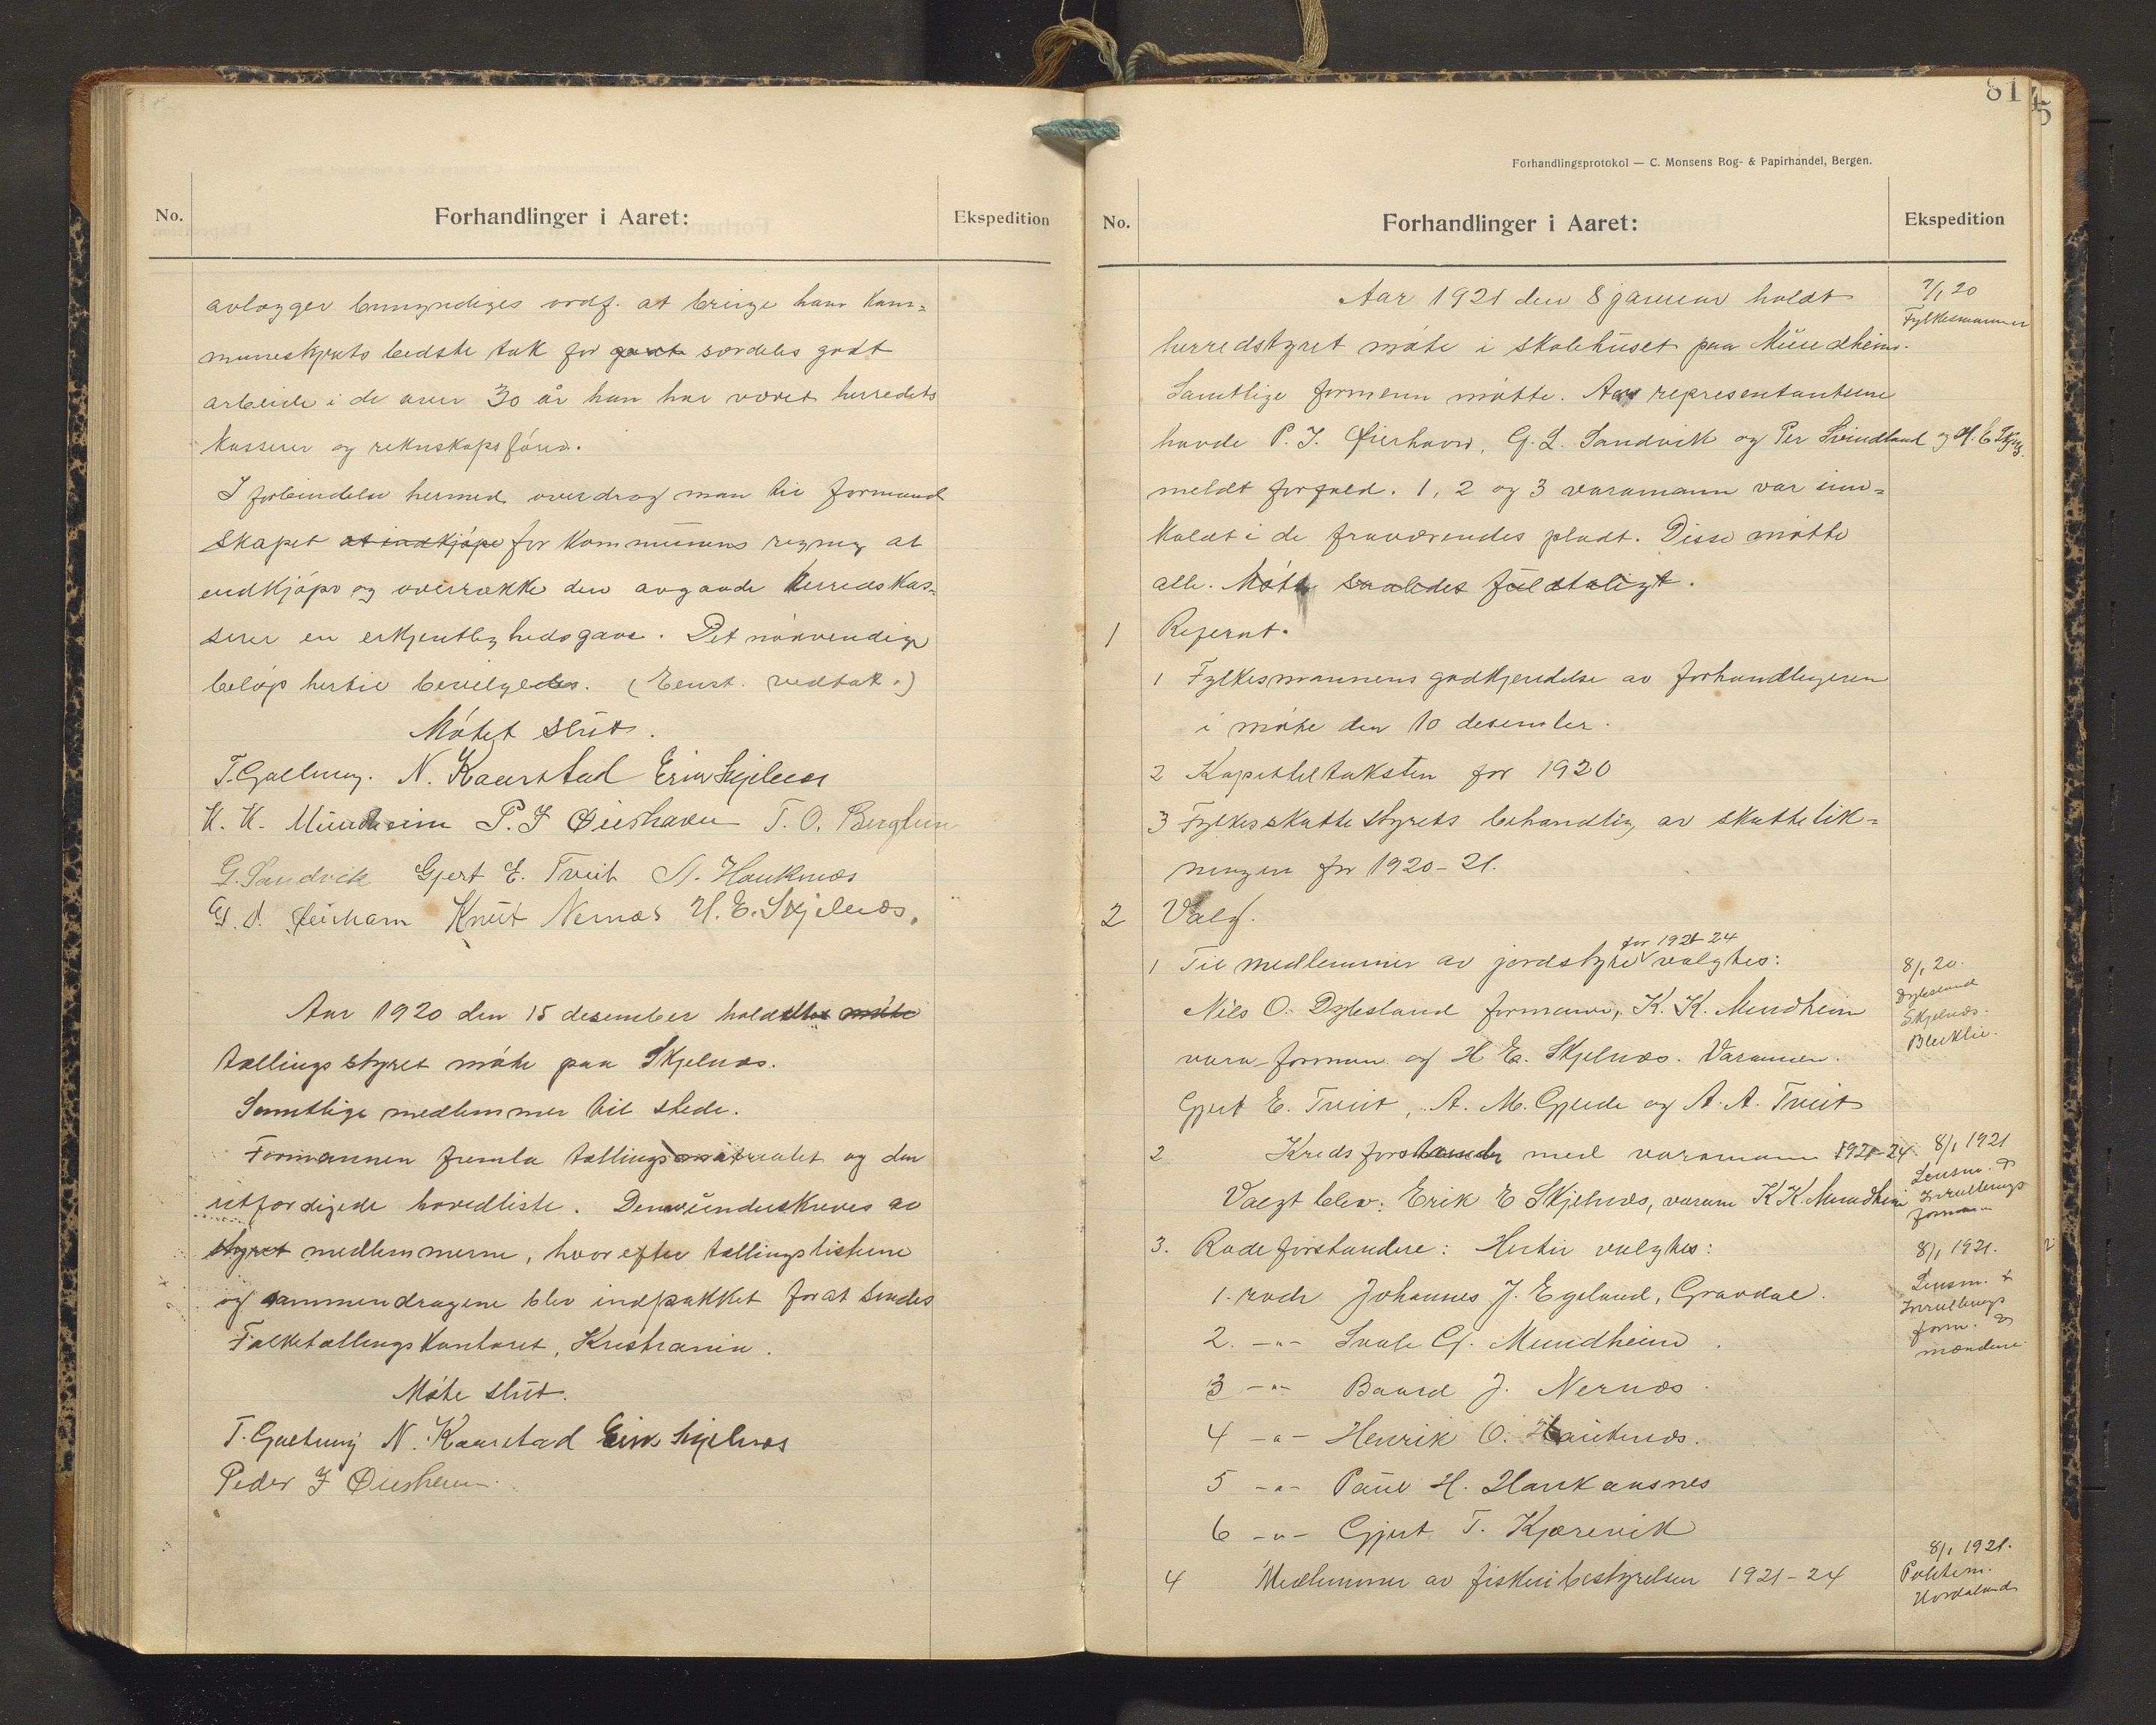 No.
Forhandlinger i Aaret:
Ekspedition
avlægger bemyndiges ordf. at bringe ham kom=
munestyrets bedste tak for godt særdeles godt
arbeide i de over 30 år han har været herredets
kasserer og reknskapsfører.
I forbindelse hermed overdrog man til formand
skapet at indkjøpe for kommunens regning at
indkjøpe og overrække den avgaaede herredskas=
serer en erkjentlighedsgave. Det nødvendige
beløp hertil bevilgedes. (Enst. vedtak.)
Møtet slut.
T. Galtung. N. Kaarstad Erik Skjelnes
K. K. Mundheim P. J. Øierhavn T. O. Berghun
G. Sandvik Gjert E. Tveit A. Hauknæs
G. J. Øierhavn Knut Nernæs H. E. Skjelnæs.
Aar 1920 den 15 desember holdtes møte
tællingsstyret møte paa Skjelnæs.
Samtlige medlemmer til stede.
Formannen fremla tællingsmatrealet og den
utfærdigede hovedliste. Denne underskreves av
styret medlemmerne, hvorefter tællingslisterne
og sammendragene blev indpakket for at sendes
Folketællingskontoret, Kristiania.
Møte slut.
T. Galtung N. Kaarstad Erik Skjelnes
Peder J Øierhavn.
81
5
Forhandlingsprotokol — C. Monsens Bog- & Papirhandel, Bergen.
No.
Forhandlinger i Aaret:
Ekspedition
Aar 1921 den 8 januar holdt
7/1 20
Fylkesmannen
herredstyret møte i skolehuset paa Mundheim.
Samtlige formenn møtte. Av representanterne
havde P. J. Øierhavn, G. L. Sandvik og Per Svindland og H. E. Skjelnæs
meldt forfald. 1, 2 og 3 varamann var inn=
kaldt i de fraværendes plads. Disse møtte
alle. Møtt saaledes fuldtaligt.
1 Referat.
1 Fylkesmannens godkjendelse av forhandlingeren
i møte den 10 desember.
2 Kapiteltaksten for 1920
3 Fylkesskattestyrets behandling av skattelik=
ningen for 1920-21.
2 Valg.
for 1921-24
1 Til medlemmer av jordstyre valgtes:
8/1 20.
Dyvesland
Skjelnæs.
Nils O. Dyvesland formann, K. K. Mundheim
vara-forman og H E. Skjelnæs. Varamen.
Gjert E. Tveit, A. M. Gjerde og A. A. Tveit
2 Kredsforstander med varamann 1921-24.
8/1 1921
Lensm. &
Innrullerings
formann
Valgt blev: Erik E Skjelnæs, varam K K. Mundheim
3. Rodeforstandere: Hertil valgtes:
8/1 1921.
Lensm. &
Innrullerings
form. &
mændene.
1. rode Johannes J. Egeland, Gravdal.
2. -"- Svale G. Mundheim.
3 -"- Baard J. Nernæs.
4 -"- Henrik O. Hauknæs.
5 -"- Paul H. Haukansnes
6 -"- Gjert T. Kjærevik
4 Medlemmer av fiskeribestyrelsen 1921-24
8/1 1921.
Politim.
Hordaland